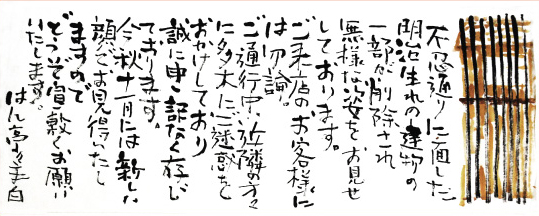 不忍通りに面した
明治生れの建物の
一部が削除され
無様な姿をお見せ
しております。
ご来店のお客様に
は勿論
ご通行中、近隣の方々
に多大にご迷惑を
おかけしており
誠に申し訳なく存じ
ております。
今秋十一月には新した
顔でお見得いたし
ますので
どうぞ宜敷くお願い
いたします。
はん亭